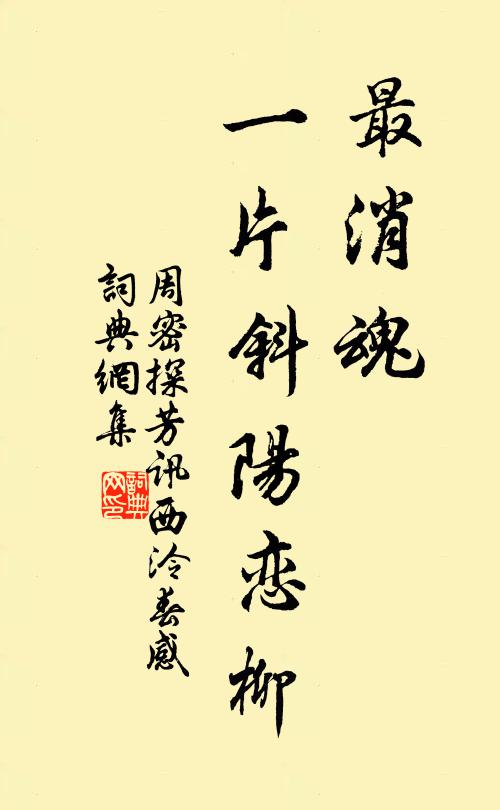 最消魂
一片斜陽恋柳
周密探芳訊西泠春感
詞典網集
詞典网印